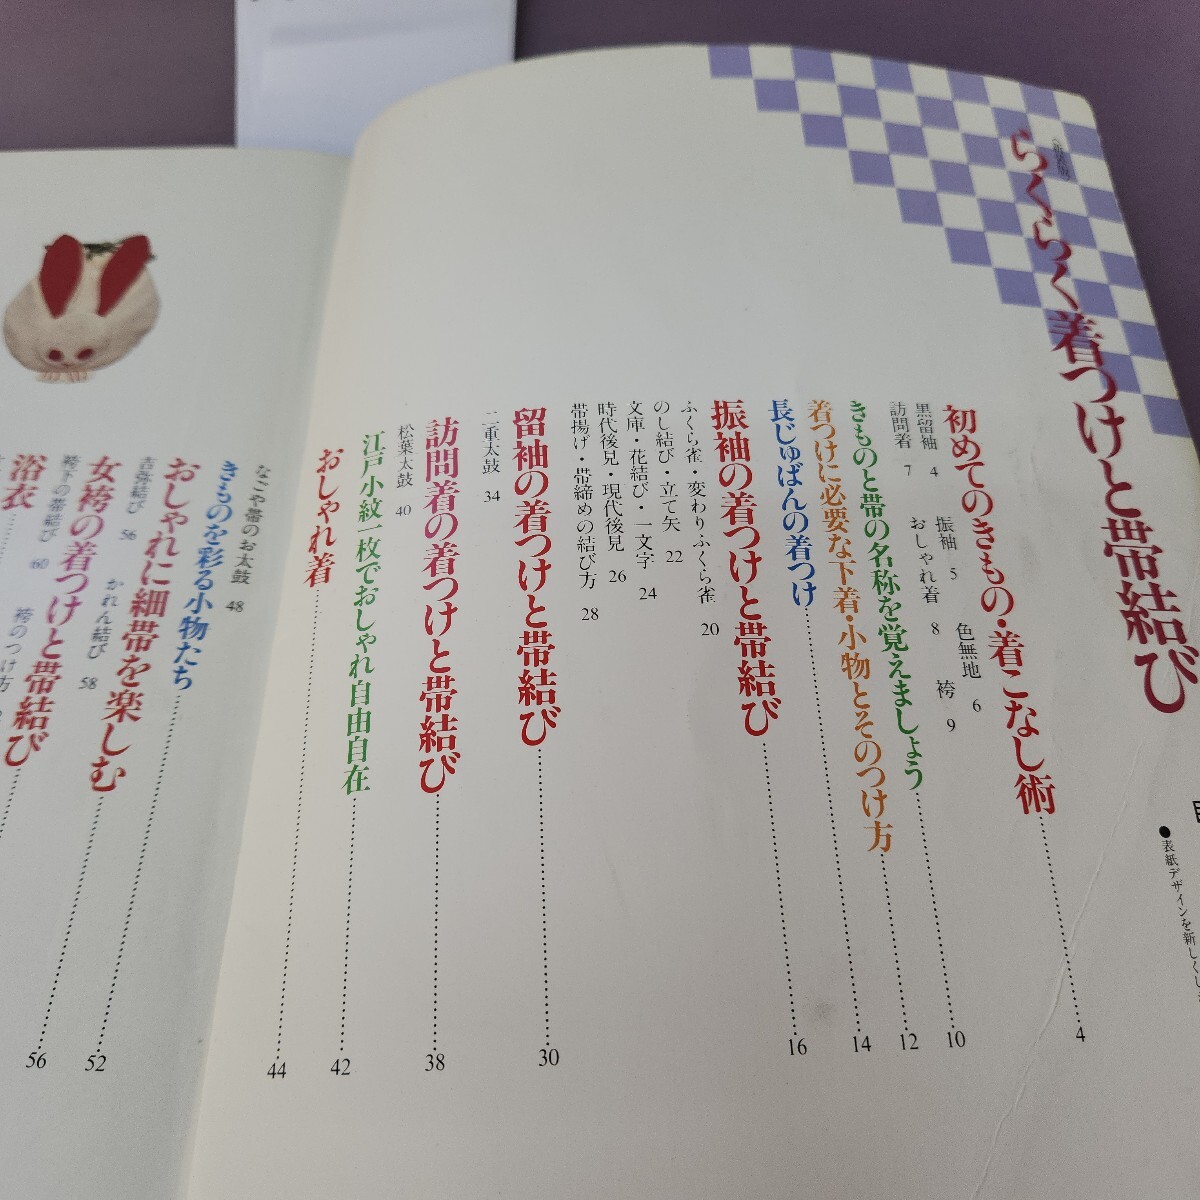 〈新装版〉
らくらく着つけと帯結び
●表紙デザインを新しくし
初めてのきもの・着こなし術 4
黒留袖 4 振袖 5 色無地 6
訪問着 7 おしゃれ着 8 袴 9
きものと帯の名称を覚えましょう 10
着つけに必要な下着・小物とそのつけ方 12
長じゅばんの着つけ 14
振袖の着つけと帯結び 16
ふくら雀・変わりふくら雀 20
のし結び・立て矢 22
文庫・花結び・一文字 24
時代後見・現代後見 26
帯揚げ・帯締めの結び方 28
留袖の着つけと帯結び 30
二重太鼓 34
訪問着の着つけと帯結び 38
松葉太鼓 40
江戸小紋一枚でおしゃれ自由自在 42
おしゃれ着 44
なごや帯のお太鼓 48
きものを彩る小物たち 52
おしゃれに細帯を楽しむ 56
吉弥結び 56 かれん結び 58
女袴の着つけと帯結び
袴下の帯結び 60 袴のつけ方
浴衣